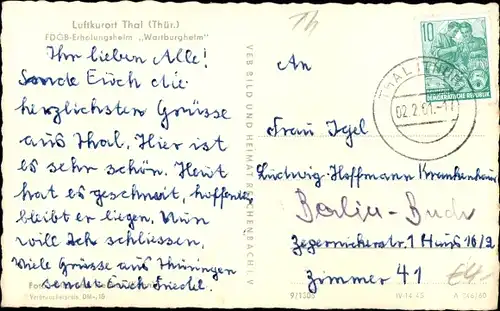 Luftkurort Thal (Thür.)
FDGB-Erholungsheim „Wartburgheim"
Ihr lieben Alle!
Sende Euch die
herzlichsten Grüsse
aus Thal. Hier ist
es sehr schön. Heut
hat es geschneit, hoffentl.
bleibt er liegen. Nun
will ich schliessen.
Viele Grüsse aus Thüringen
sendet Euch Friedel.
Verbraucherpreis: DM -,15
VEB BILD UND HEIMAT REICHENBACH i. V
Th
10
DEUTSCHE DEMOKRATISCHE REPUBLIK
THAL (THÜR)
02.2.61.-17
An
Frau Igel
Ludwig-Hoffmann Krankenhaus
Berlin-Buch
Zepernickerst. 1 Haus 16/2
Zimmer 41
9/1308
IV-14-45
A 146/60